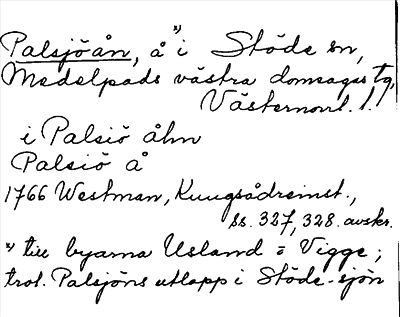 Palsjöån, å ¹⁾ i Stöde sn,
Medelpads västra domsagas tg,
Västernorrl. l.
i Palsiö åhn
Palsiö å
1766 Westman, Kungsådreinst.,
ss. 327, 328. avskr.
¹⁾ till byarna Usland o Vigge;
trol. Palsjöns utlopp i Stöde-sjön